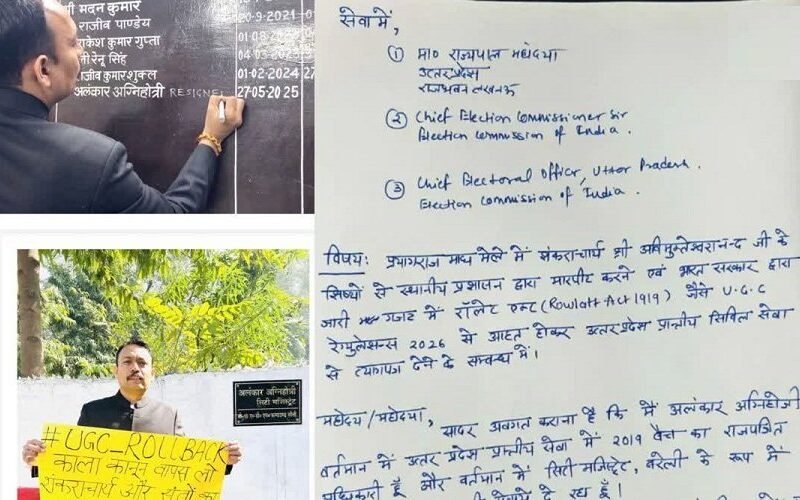 मदन कुमार
20-9-2021
राजीव पाण्डेय
राकेश कुमार गुप्ता
01-08
रेनू सिंह
04-03
राजीव कुमार शुक्ल
01-02-2024
अलंकार अग्निहोत्री RESIGNE
27-05-2025
#UGC_ROLLBACK
काला कानून वापस लो
शंकराचार्य और संतों का
अलंकार अग्निहोत्री
सिटी मजिस्ट्रेट
सेवा में,
① मा० राज्यपाल महोदया
उत्तर प्रदेश
राजभवन लखनऊ
② Chief Election Commissioner Sir
Election Commission of India.
③ Chief Electoral Officer, Uttar Pradesh.
Election Commission of India.
विषय: प्रयागराज माघ मेले में शंकराचार्य श्री अविमुक्तेश्वरानन्द जी के
शिष्यों से स्थानीय प्रशासन द्वारा मारपीट करने एवं भारत सरकार द्वारा
जारी गजट में रॉलेट एक्ट (Rowlatt Act 1919) जैसे U.G.C
रेगुलेशन्स 2026 से आहत होकर उत्तर प्रदेश प्रान्तीय सिविल सेवा
से त्यागपत्र देने के सम्बन्ध में।
महोदय/महोदया,
सादर अवगत कराना है कि मैं अलंकार अग्निहोत्री
वर्तमान में उत्तर प्रदेश प्रान्तीय सेवा में 2019 बैच का राजपत्रित
अधिकारी हूँ और वर्तमान में सिटी मजिस्ट्रेट, बरेली के रूप में
दे रहा हूँ।